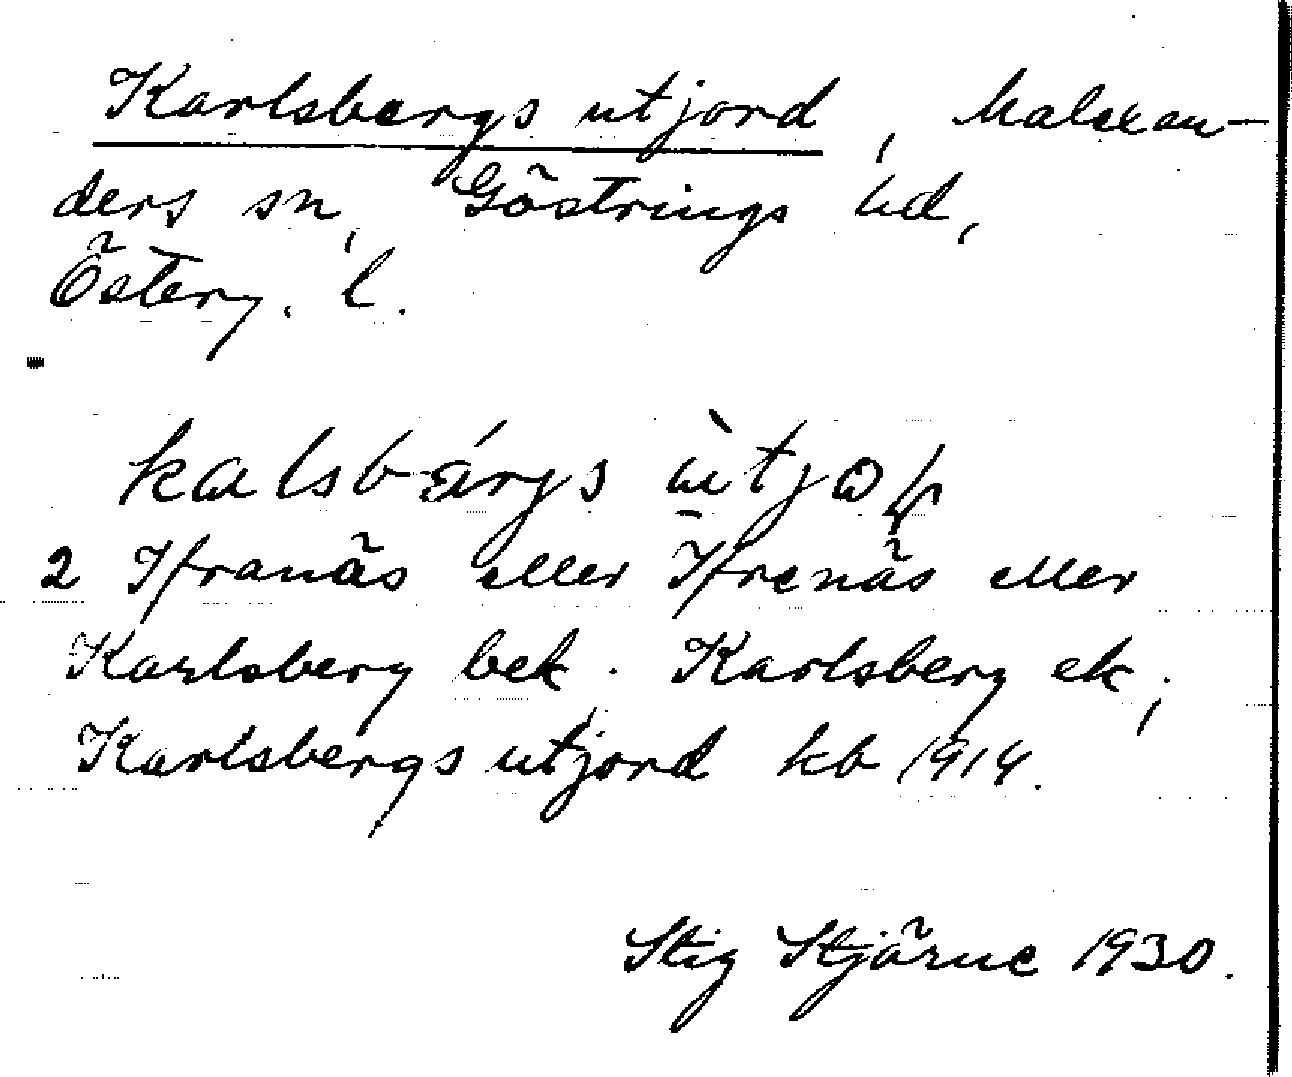 Karlsbergs utjord, Malexan-
ders sn, Göstrings hd,
Österg. l.
kalsbárgs ùtjoḍ
2 Ifranäs eller Ifrenäs eller
Karlsberg bek. Karlsberg ek,
Karlsbergs utjord kb 1914.
Stig Stjärne 1930.